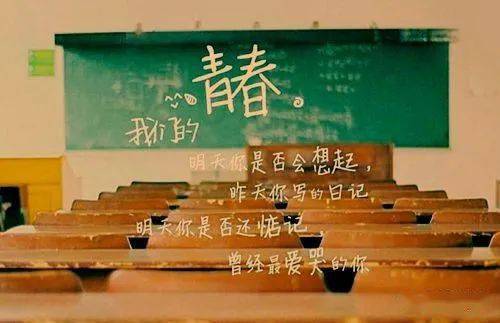 青春
我们的
明天你是否会想起，
昨天你写的日记
明天你是否还惦记，
曾经最爱哭的你